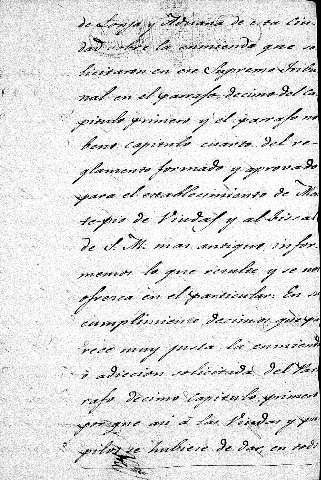 de Lonja y Aduana de esta Ciu
dad sobre la enmienda que so
licitaron en ese Supremo Tribu
nal en el parrafo decimo del ca
pitulo primero y el parrafo no
beno capitulo cuarto del re
glamento formado y aprovado
para el establecimiento de Mon
te pio de Viudas y al Fiscal
de S. M. mas antiguo infor
memos lo que resulte y se nos
ofresca en el particular. En su
cumplimiento decimos, que pa
rece muy justa la enmienda
ò adiccion solicitada del Par
rafo decimo Capitulo primero
por que asi á las Viudas y pu
pilos se hubiese de dar, en todo